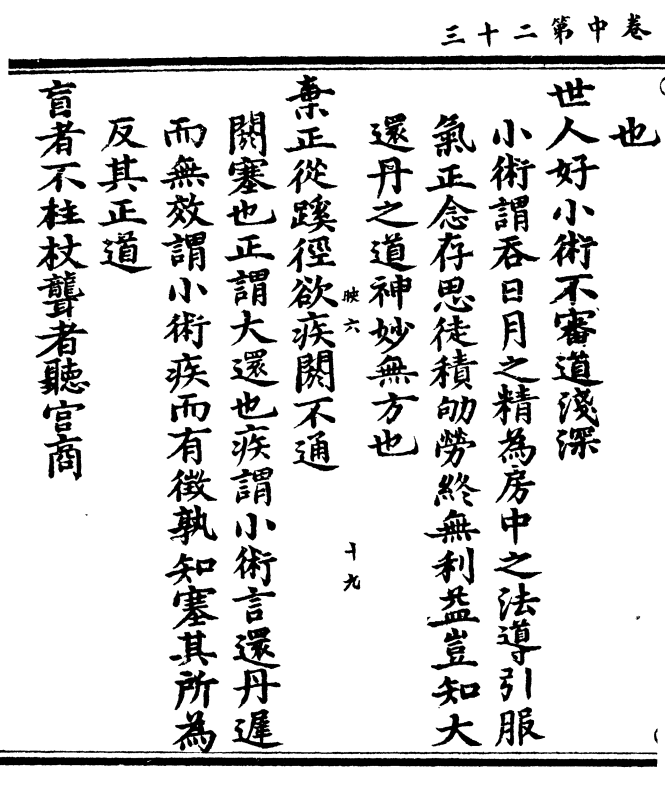 卷中第二十三
也
世人好小術不審道淺深
小術謂吞日月之精為房中之法導引服
氣正念存思徒積劬勞終無利益豈知大
還丹之道神妙無方也
映六
十九
棄正從蹊徑欲疾閼不通
閼塞也正謂大還也疾謂小術言還丹遲
而無效謂小術疾而有徵孰知塞其所為
反其正道
盲者不柱杖聾者聽宫商